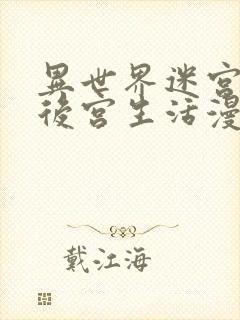 異世界迷宮
後宮生活漫
戴江海